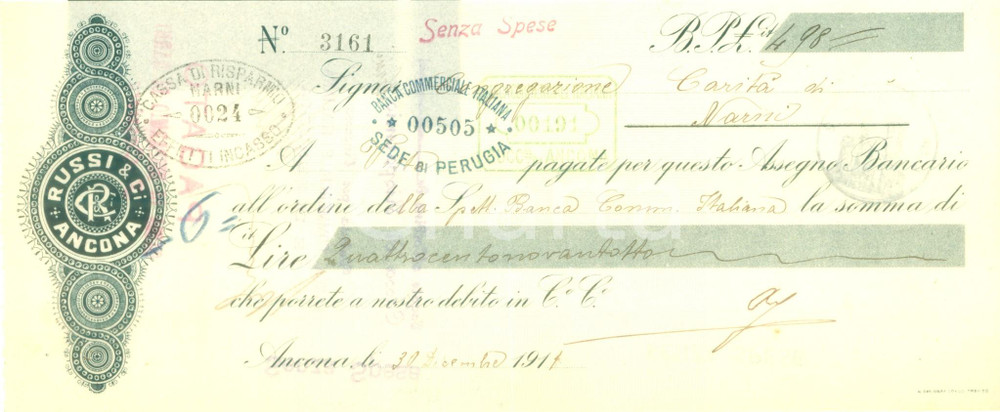 Nº 3161 Senza Spese B.P.Lit 498
CASSA DI RISPARMIO
NARNI
0024
EFFETTI INCASSO
BANCA COMMERCIALE ITALIANA
00505
SEDE DI PERUGIA
00191
RUSSI & Ci
ANCONA
Signor Congregazione Carità di
Narni
A pagate per questo Assegno Bancario
all'ordine della Spett. Banca Comm. Italiana la somma di
Lit
Lire Quattrocentonovantotto
che porrete a nostro debito in C.º C.º
Ancona, li 30 Dicembre 1914